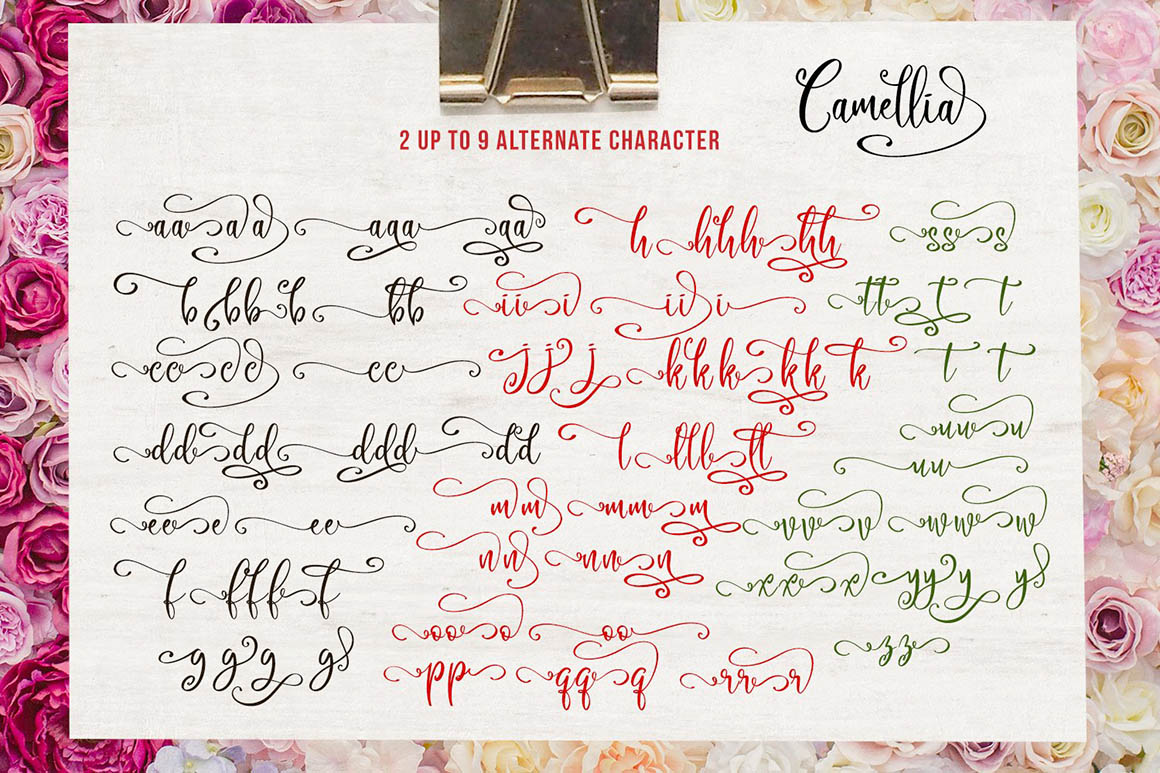 Camellia
2 UP TO 9 ALTERNATE CHARACTER
aaaa aaa aa
b bb b bb
cccc cc
dddd ddd dd
eee ee
f fff f
g g g g
h hhh hh
iii ii i
j j j kkk kk k
l lll ll
mm mm m
nn nn n
ooo oo
pp qqq rrr
sss
tt t t
t t
uuu
uu
vvv www
xxx yyy y
zz